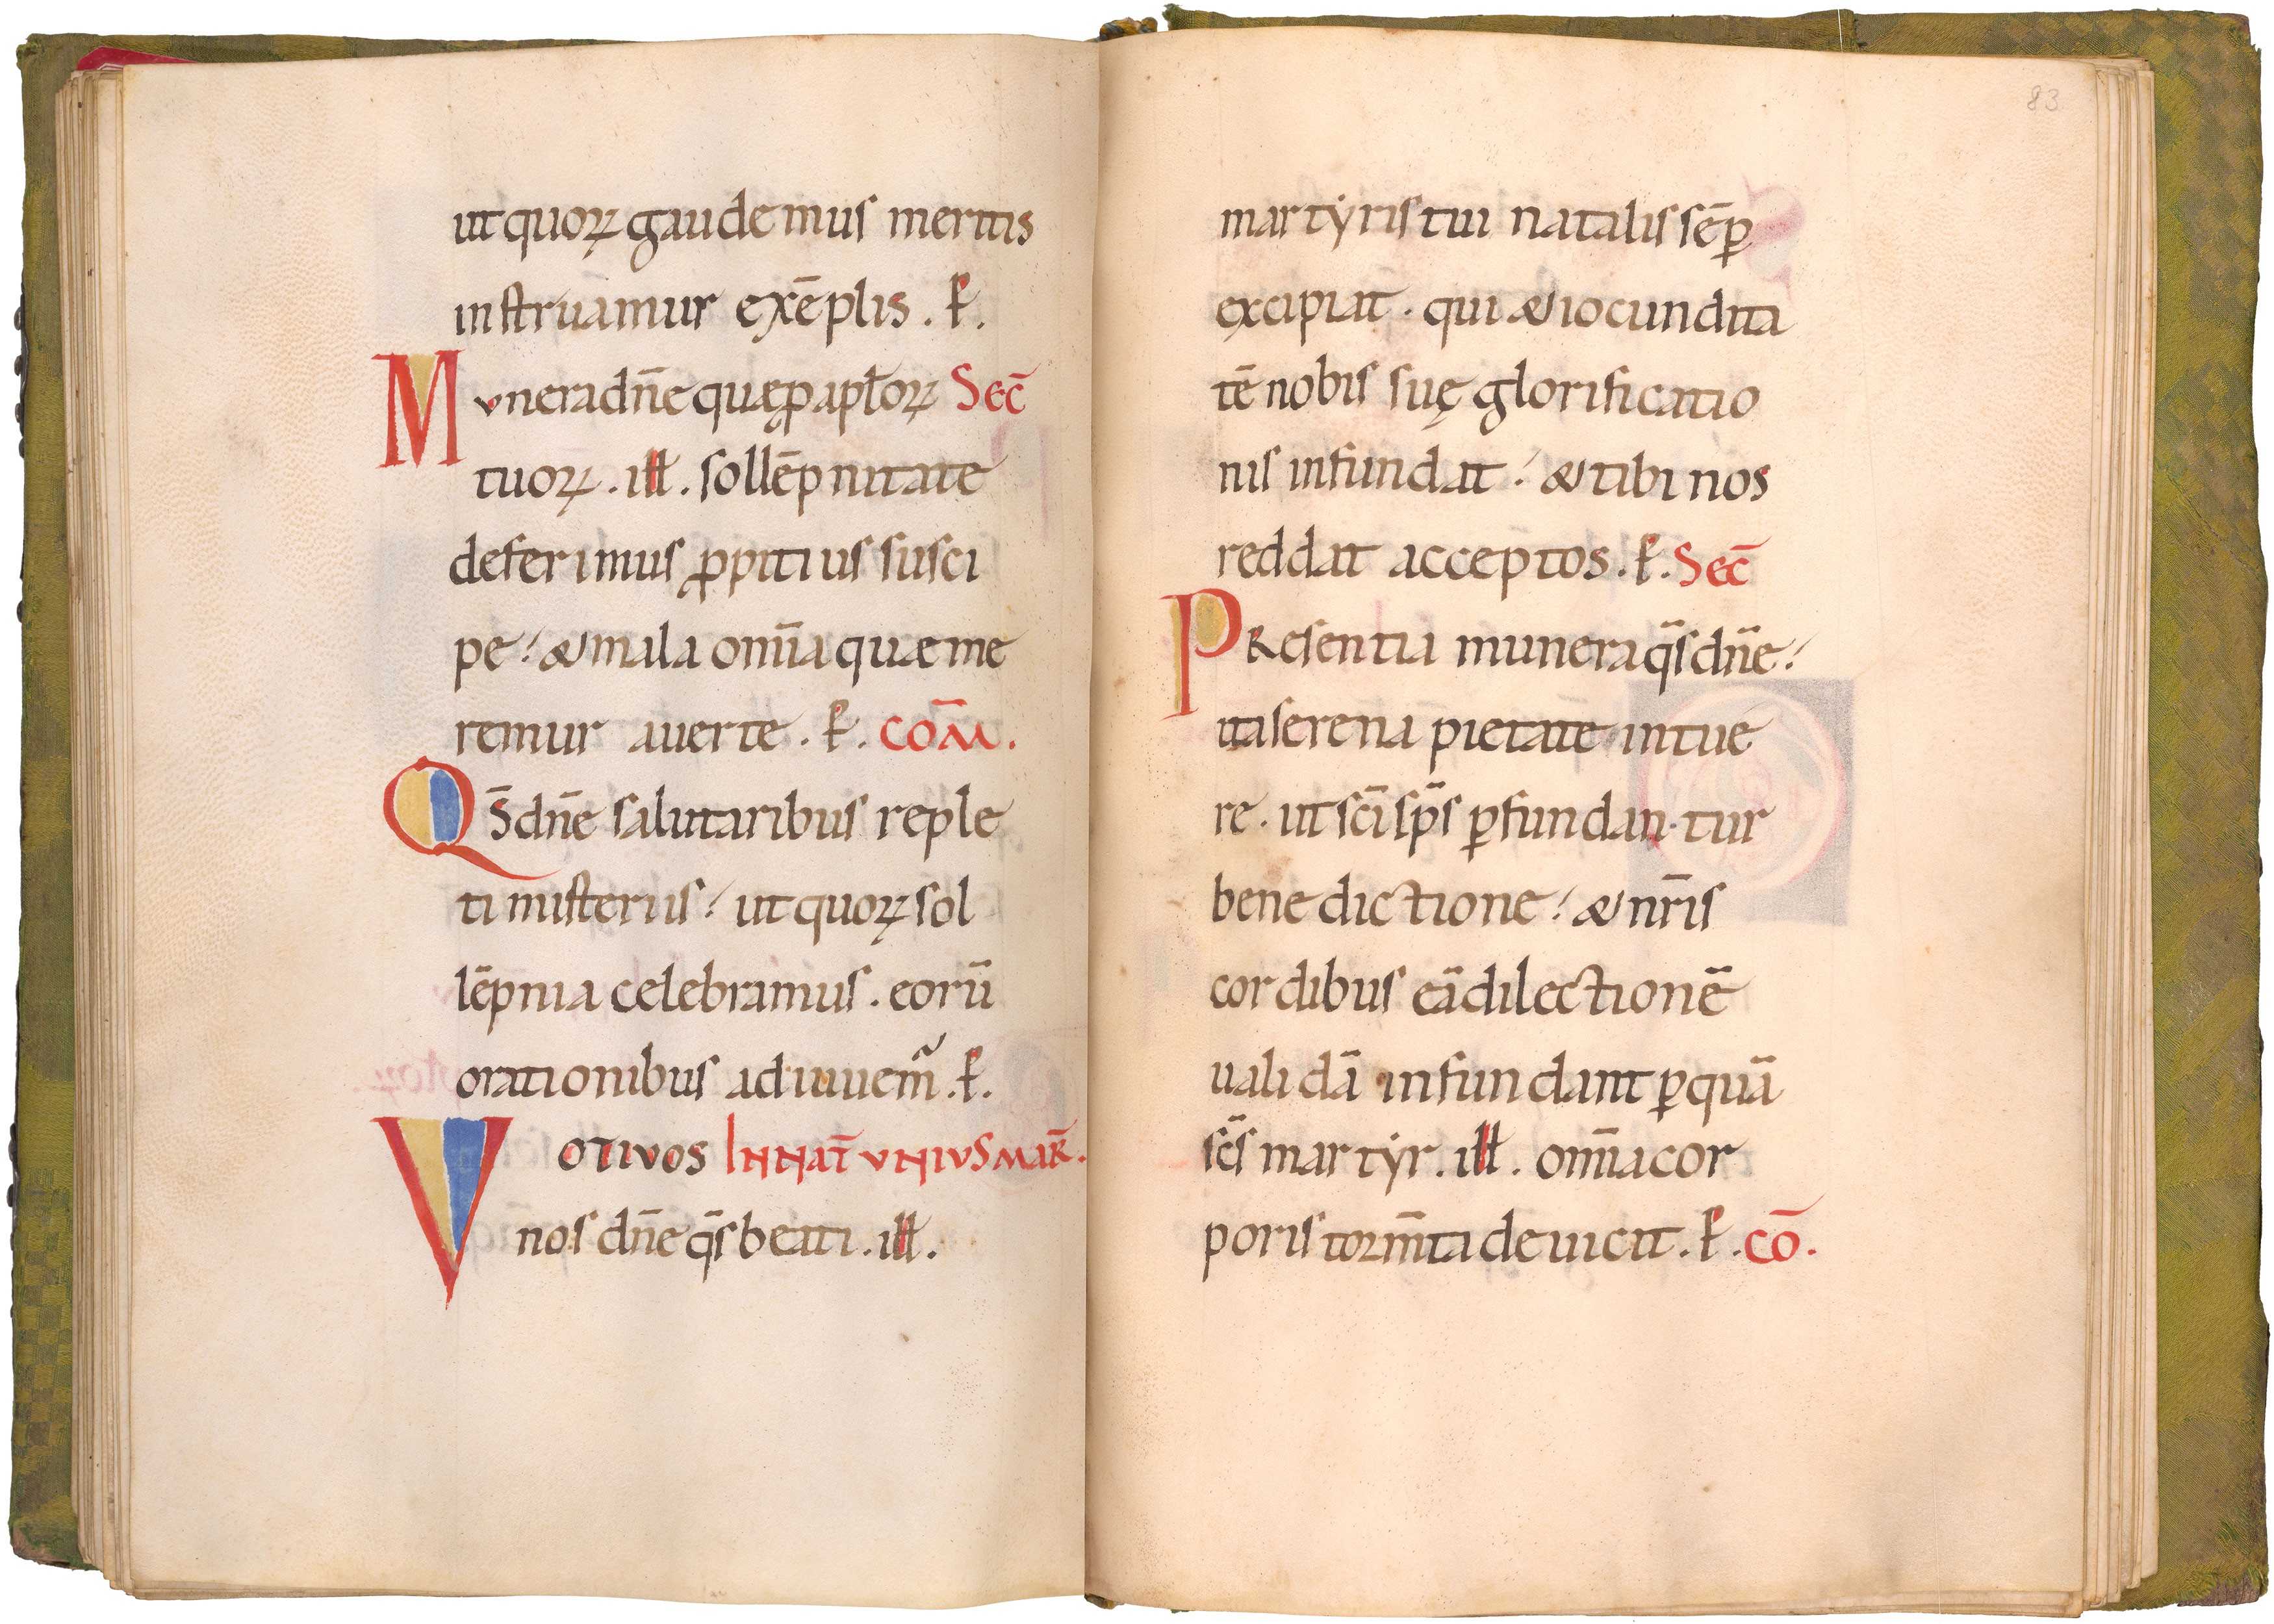 ut quoꝝ gaudemus meritis
instruamur exēplis . ꝑ.
Muneradn̄e quæꝓ aplōꝝ Sec̄
tuoꝝ . ill̵ . sollēpnitate
deferimus ꝓpitius susci
pe ⹎ &mala om̄ia quæ me
remur auerte . ꝑ. COM̄.
QS̄ dn̄e salutaribus reple
ti misteriis ⹎ ut quoꝝ sol
lēpnia celebramus . eorū
orationibus adiuuem̃ . ꝑ.
VOTIVOS IN NAT̄ VNIVS MAR̄.
nos dn̄e qs̄ beati . ill̵ .
83
martẏris tui natalis sēꝑ
excipiat . qui & iocundita
tē nobis suę glorificatio
nis infundat ⹎ & tibi nos
reddat acceptos . ꝑ. Sec̄
PResentia munera qs̄ dn̄e ⹎
ita serena pietate intue
re . ut sc̄i sp̄s ꝑfundantur
benedictione ⹎ & nr̄is
cordibus eā dilectionē
ualidā infundant ꝑ quā
sc̄s martẏr . ill̵ . om̄a cor
poris torm̄ta deuicit . ꝑ. cō.